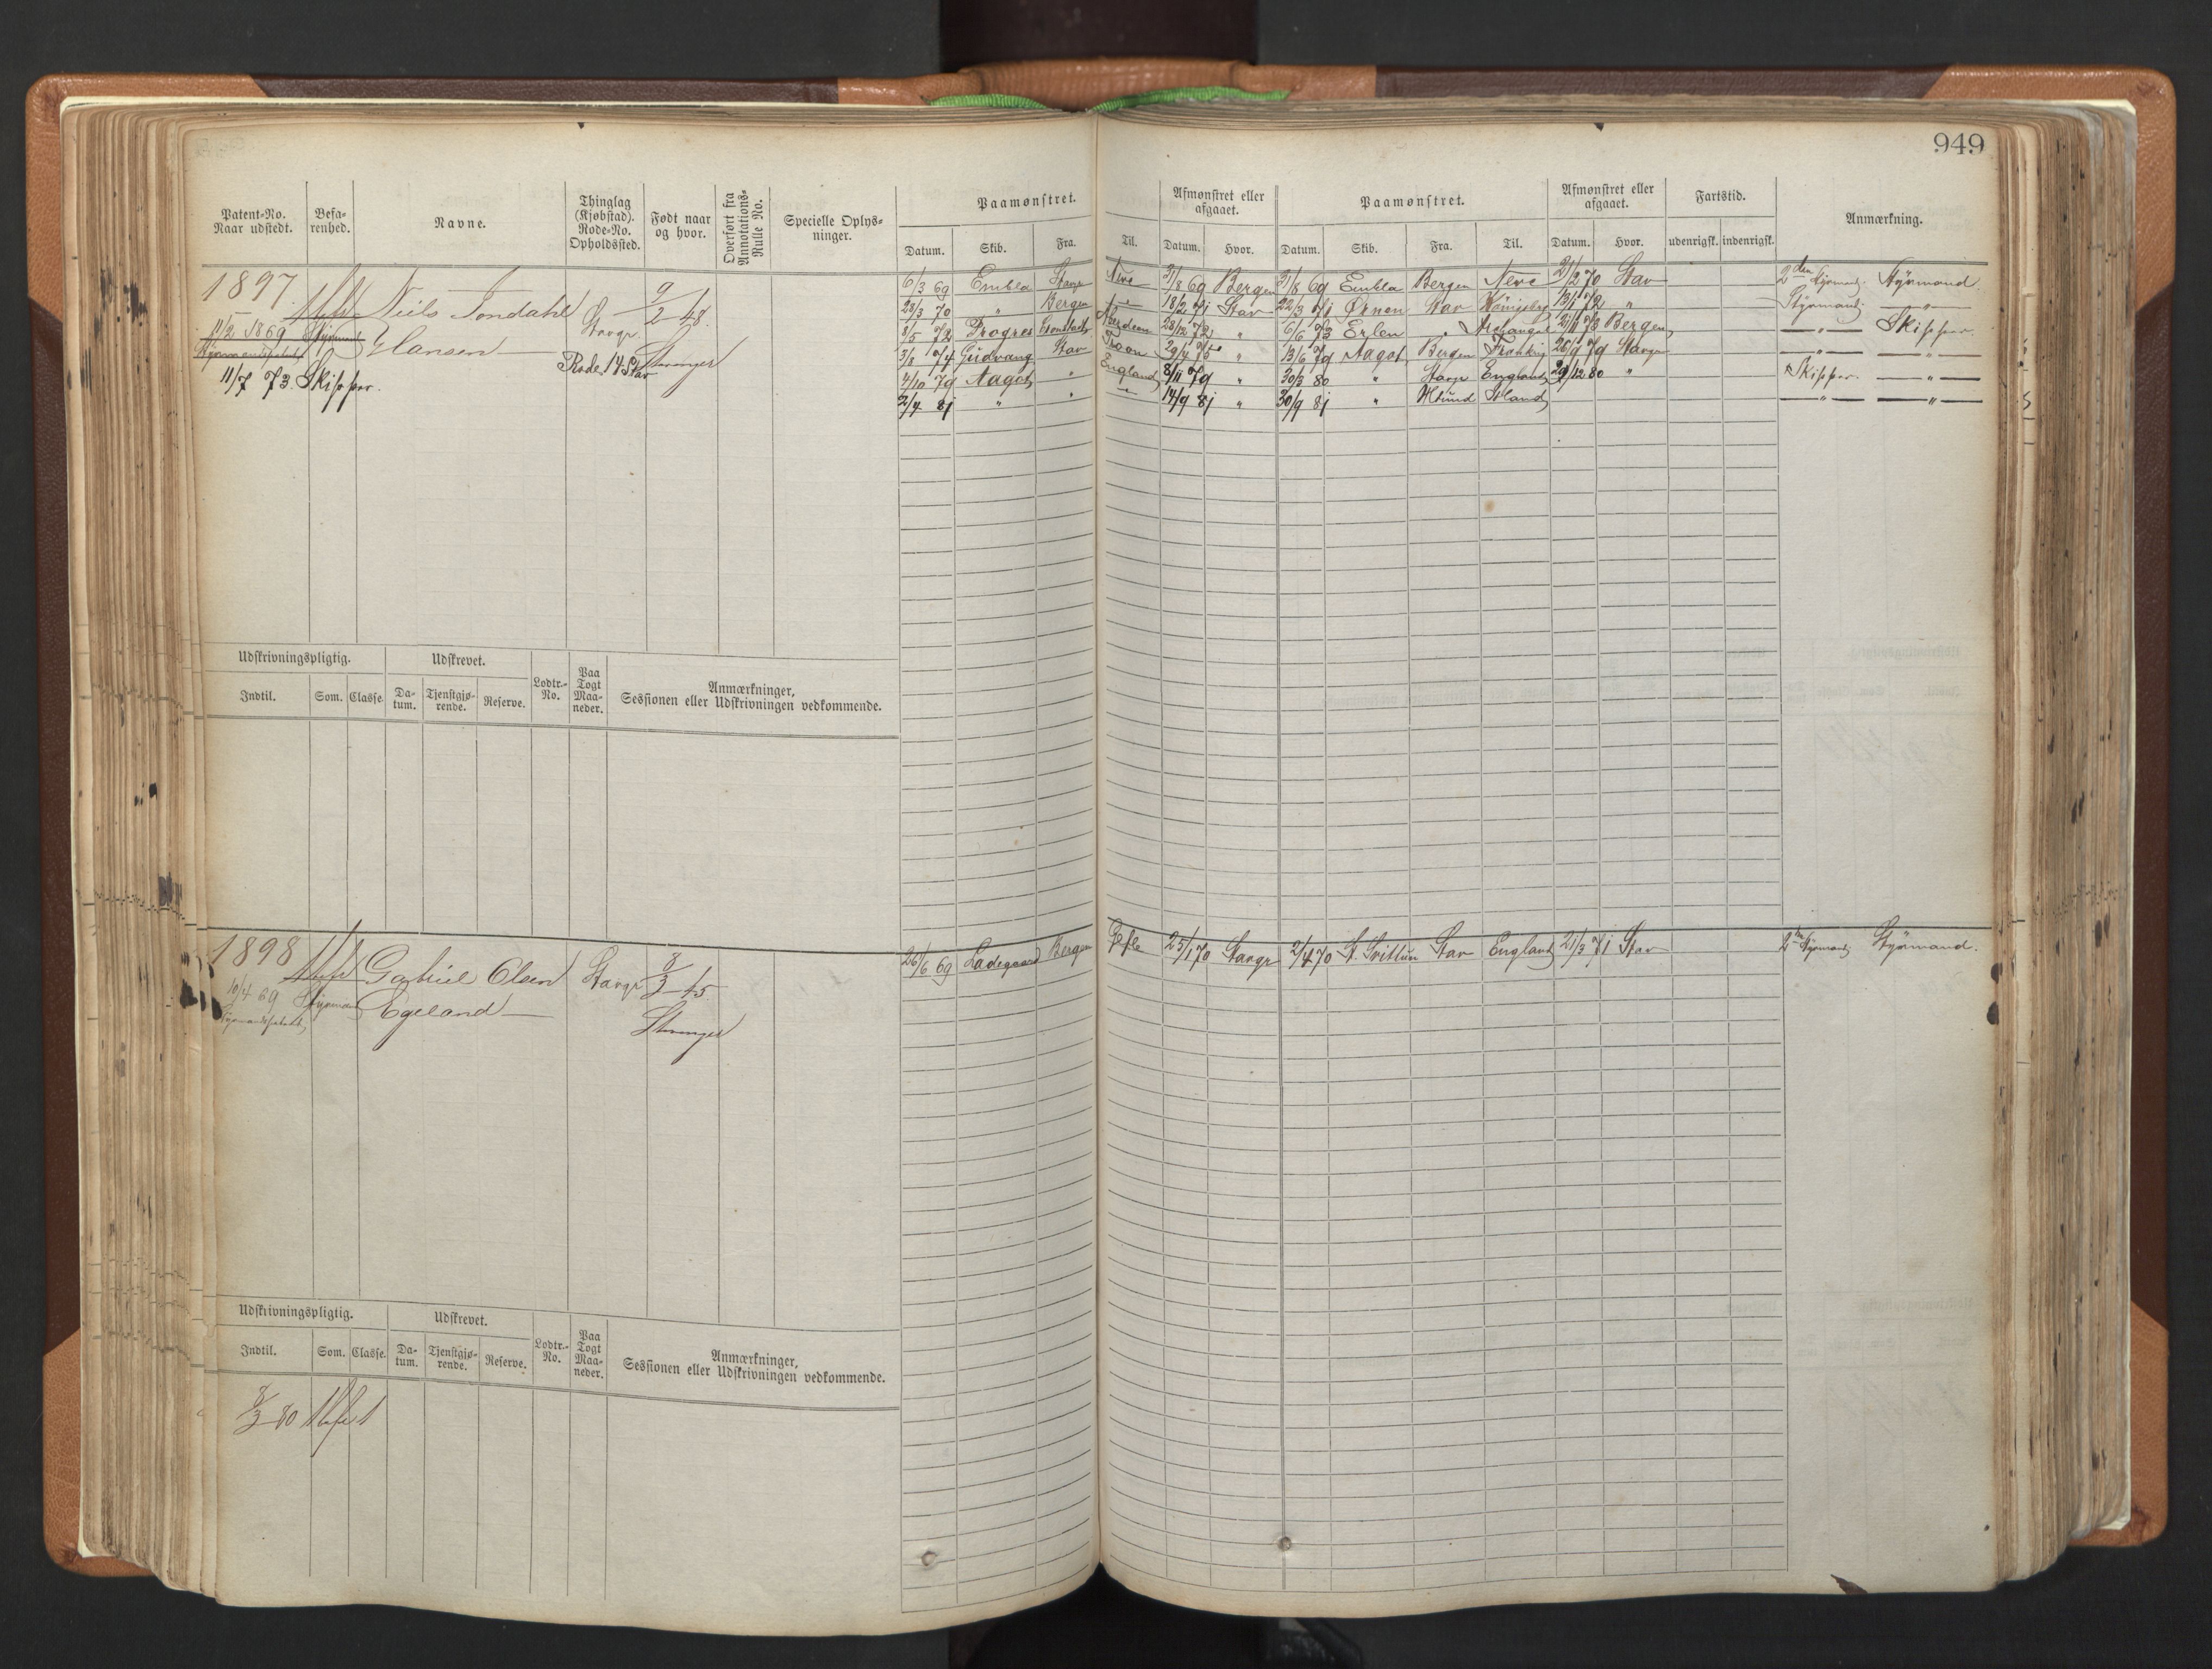 949
Patent-No. Naar udstedt. Befa-renhed. Navne. Thinglag (Kjøbstad). Rode-No. Opholdssted. Født naar og hvor. Overført fra Annotations-Rulle No. Specielle Oplys-ninger. Paamønstret. Afmønstret eller afgaaet. Paamønstret. Afmønstret eller afgaaet. Fartstid. Anmærkning.
Datum. Skib. Fra. Til. Datum. Hvor. Datum. Skib. Fra. Til. Datum. Hvor. udenrigsk. indenrigsk.
1897 Niels Tondahl Stavgr 9/2 48 6/3 69 Embla Stavgr Neve 31/8 69 Bergen 31/8 69 Embla Bergen Neve 21/2 70 Stav 2den Styrmand. Styrmand.
23/3 70 " Bergen 18/2 71 Stav 22/3 71 Ørnen Stav Königsberg 13/1 72 " Styrmand. — " —
11/2 1869 Styrmand Hansen 8/5 72 Progres 28/12 72 " 6/6 73 Erlen " Archangel 21/11 73 Bergen — " — Skipper.
Rode. 14 Stav Stavanger 3/8 74 Gudvang Stav Troon 29/4 75 " 13/6 79 Aagot Bergen 26/9 79 Stavgr — " — — " —
11/7 73. Skipper. 4/10 79 Aagot " England 8/11 79 " 30/3 80 " Stavgr England 29/12 80 " Skipper. — " —
2/4 81 " " — " — 14/9 81 " 30/9 81 " Island — " — — " —
Udskrivningspligtig. Udskrevet. Lodtr.-No. Paa Togt Maa-neder. Anmærkninger, Sessionen eller Udskrivningen vedkommende.
Indtil. Som. Classe. Da-tum. Tjenstgjø-rende. Reserve.
1898 Gabriel Olsen Stavgr 8/3 45 26/6 69 Ladegaard Bergen Gefle 25/1 70 Stavgr 2/4 70 St. Svithun Stav England 21/3 71 Stav 2den Styrmand Styrmand.
10/4 69 Styrmand Egeland —
Styrmandspatent Stavanger
Udskrivningspligtig. Udskrevet. Lodtr.-No. Paa Togt Maa-neder. Anmærkninger, Sessionen eller Udskrivningen vedkommende.
Indtil. Som. Classe. Da-tum. Tjenstgjø-rende. Reserve.
8/3 80 1